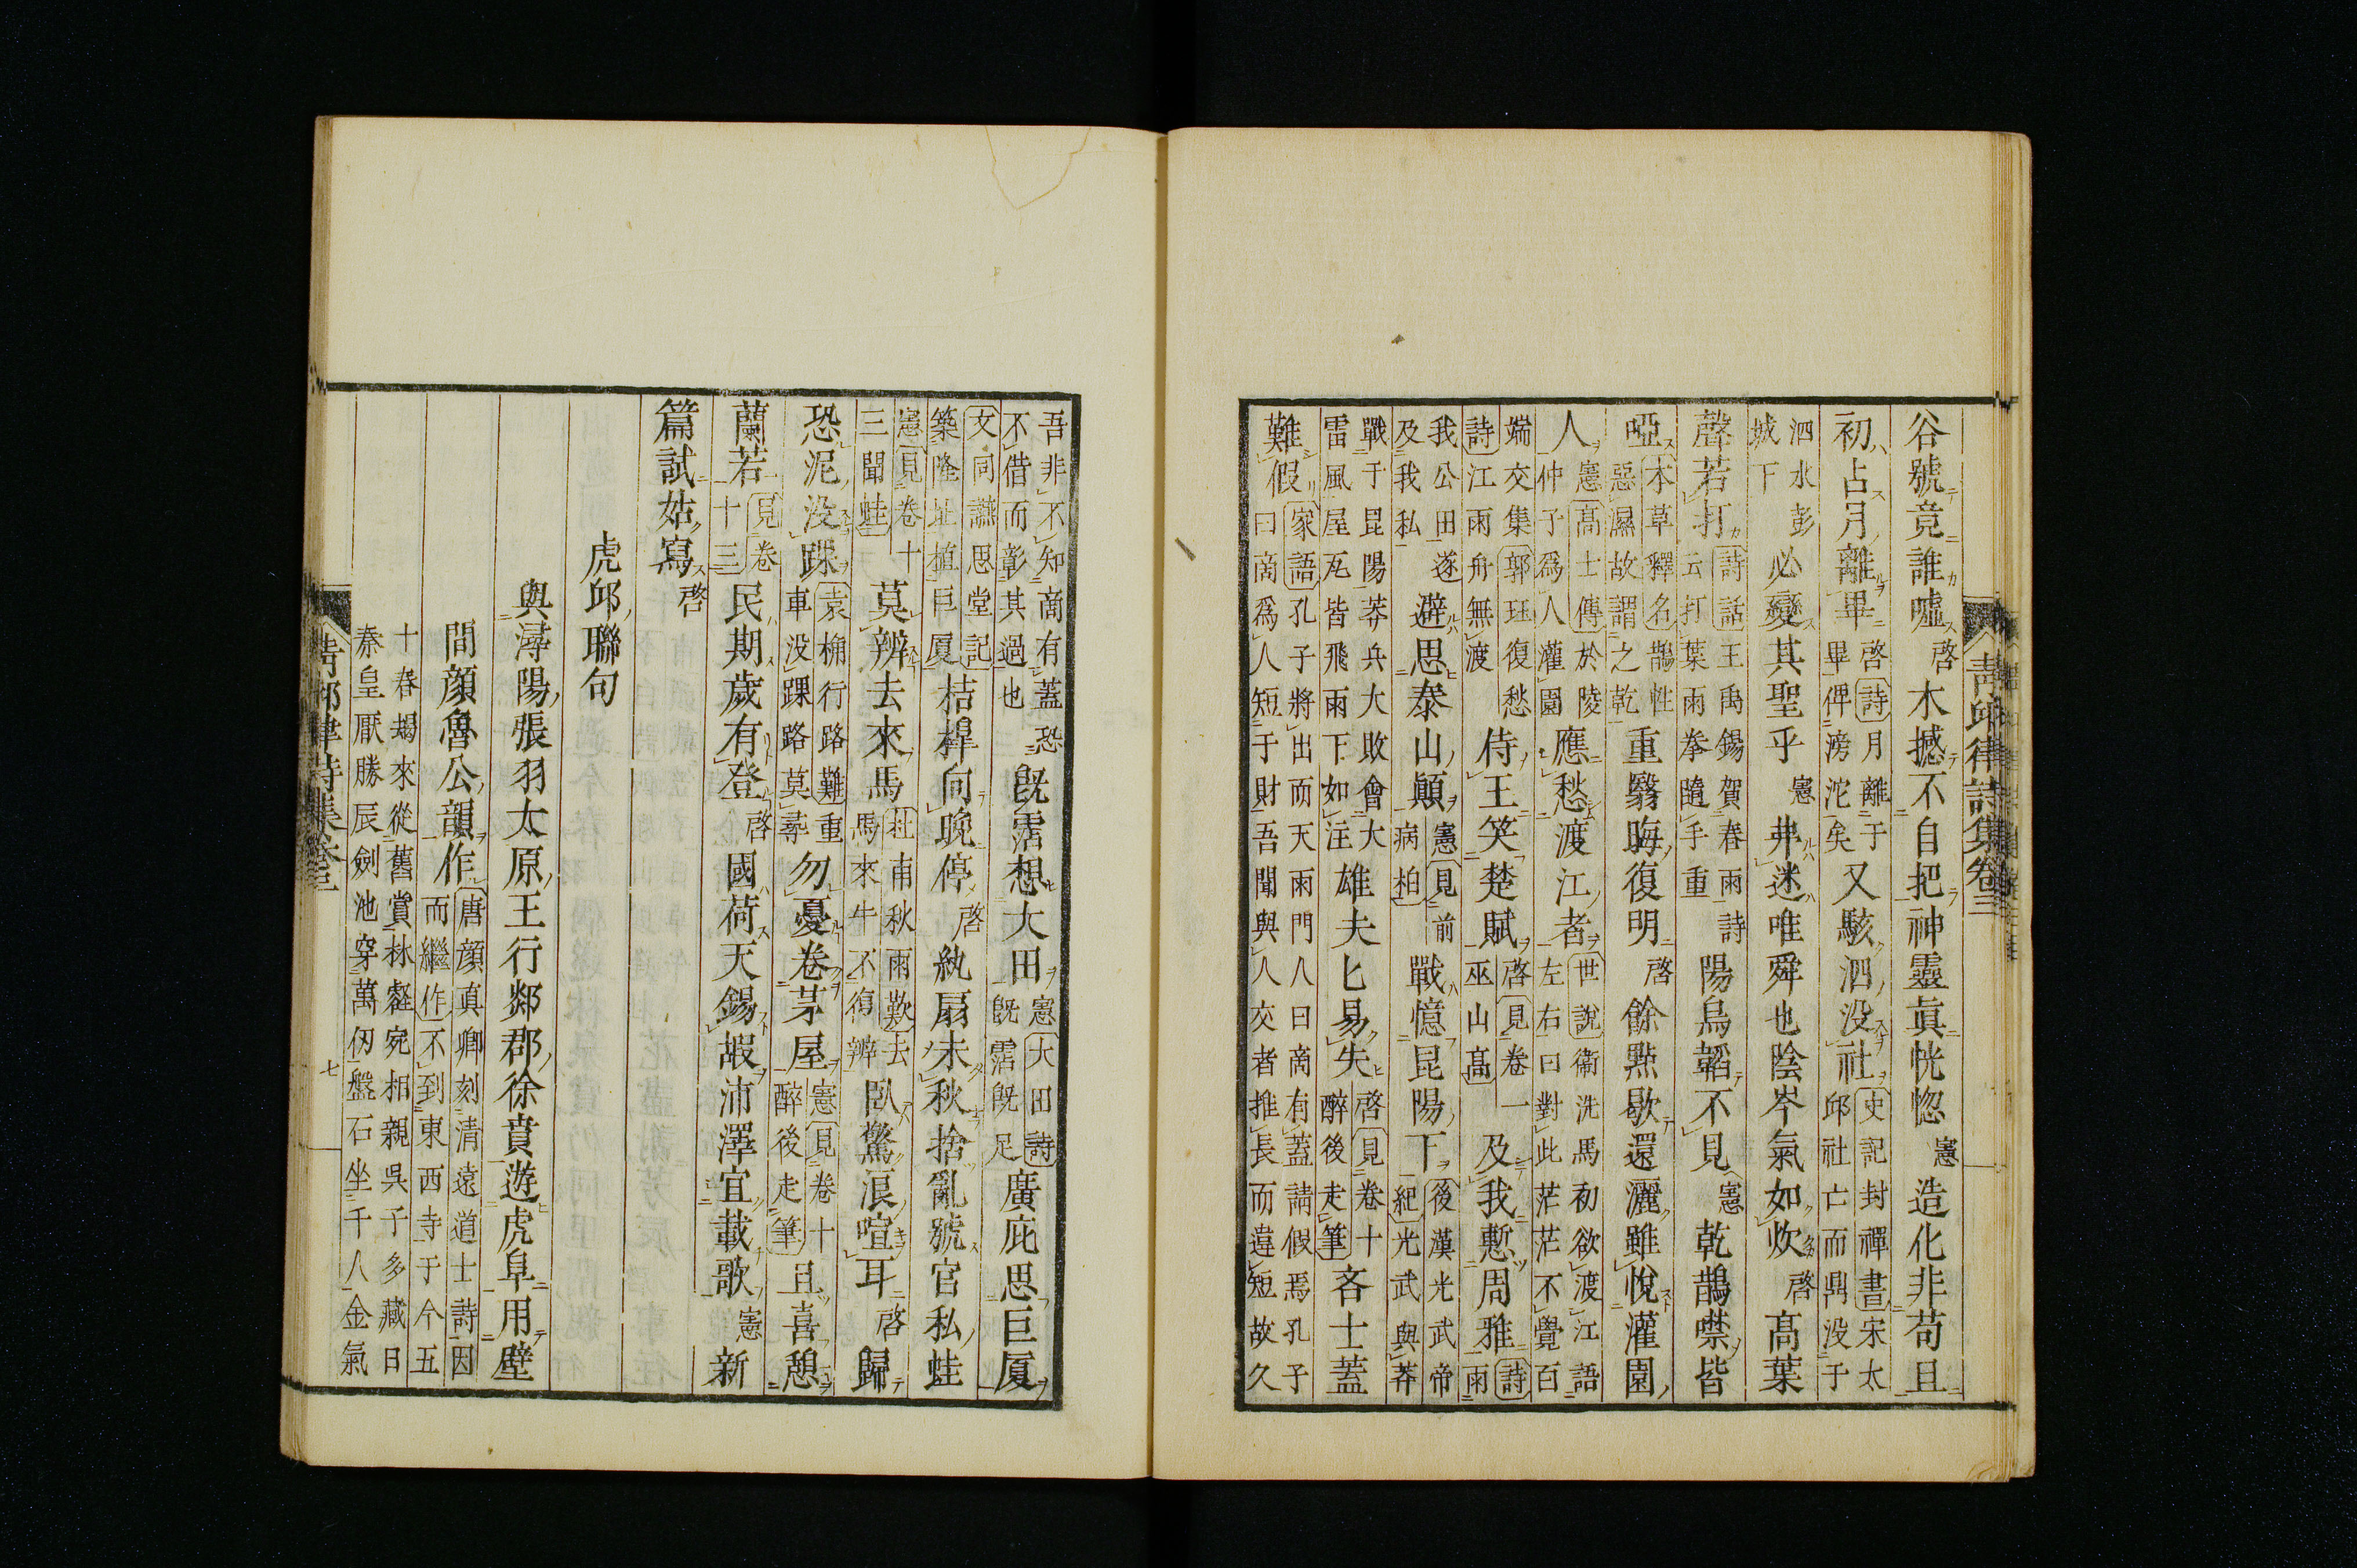 青邱律詩集卷三
谷號竟誰噓啓木撼不自把神靈眞恍惚憲造化非苟且
初占月離畢啓詩月離于畢俾滂沱矣又駭泗没社史記封禪書宋太邱社亡而鼎没于
泗水彭城下必變其聖乎憲弗迷唯舜也陰岑氣如炊啓高葉
聲若打詩話王禹錫賀春雨詩云打葉雨拳隨手重陽烏韜不見憲乾鵲噤皆
啞本草釋名鵲性惡濕故謂之乾重翳晦復明啓餘點歇還灑雖悅灌園
人憲高士傳於陵仲子爲人灌園應愁渡江者世說衛洗馬初欲渡江語左右曰對此茫茫不覺百
端交集郭珏復愁詩江雨舟無渡侍王笑楚賦啓見卷一巫山高及我慙周雅詩雨
我公田遂及我私避思泰山顚憲見前病柏戰憶昆陽下後漢光武帝紀光武與莽
戰于昆陽莽兵大敗會大雷風屋瓦皆飛雨下如注雄夫匕易失啓見卷十醉後走筆吝士蓋
難假家語孔子將出而天雨門人曰商有蓋請假焉孔子曰商爲人短于財吾聞與人交者推長而違短故久
吾非不知商有蓋恐不借而彰其過也既霑想大田憲大田詩既霑既足廣庇思巨厦
文同讌思堂記築隆址植巨厦桔槹向晚停啓紈扇未秋捨亂號官私蛙
憲見卷十三聞蛙莫辨去來馬杜甫秋雨歎去馬來牛不復辨臥驚浪喧耳啓歸
恐泥没踝袁桷行路難重車没踝路莫尋勿憂卷茅屋憲見卷十醉後走筆且喜憩
蘭若見卷十三民期歲有登啓國荷天錫嘏沛澤宜載歌憲新
篇試姑寫啓
虎邱聯句
與潯陽張羽太原王行郯郡徐賁遊虎阜用壁
間顔魯公韻作唐顔真卿刻清遠道士詩因而繼作不到東西寺于今五
十春朅來從舊賞林壑宛相親吳子多藏日秦皇厭勝辰劍池穿萬仞盤石坐千人金氣
青邱律詩集卷三
七